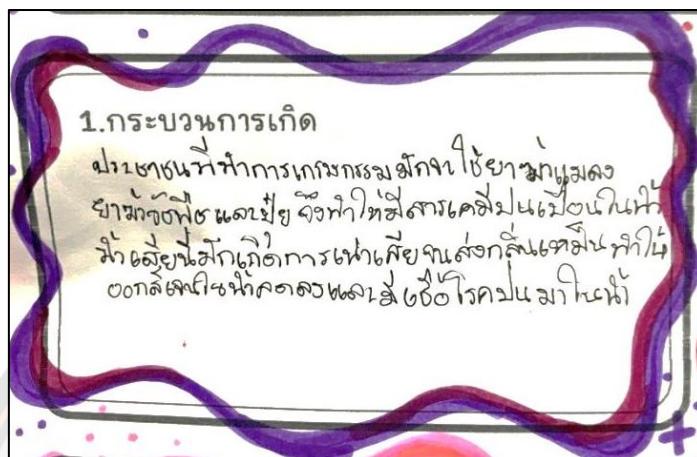 1.กระบวนการเกิด
ประชาชนที่ทำการเกษตรกรรมมักจะใช้ยาฆ่าแมลง
ยาฆ่าวัชพืชและปุ๋ย จึงทำให้มีสารเคมีปนเปื้อนในน้ำ
น้ำเสียนี้มักเกิดการเน่าเสียจนส่งกลิ่นเหม็น ทำให้
ออกซิเจนในน้ำลดลงและมีเชื้อโรคปนมาในน้ำ